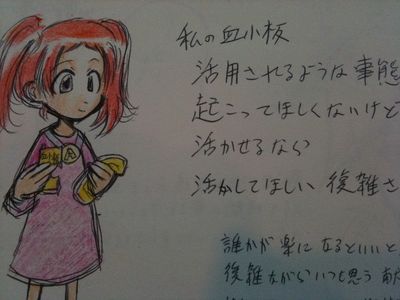 私の血小板
活用されるような事態
起こってほしくないけど
活かせるなら
活かしてほしい 後雑さ
誰かが楽になるといいと
後雑ながらいつも思う 献
血小板
A